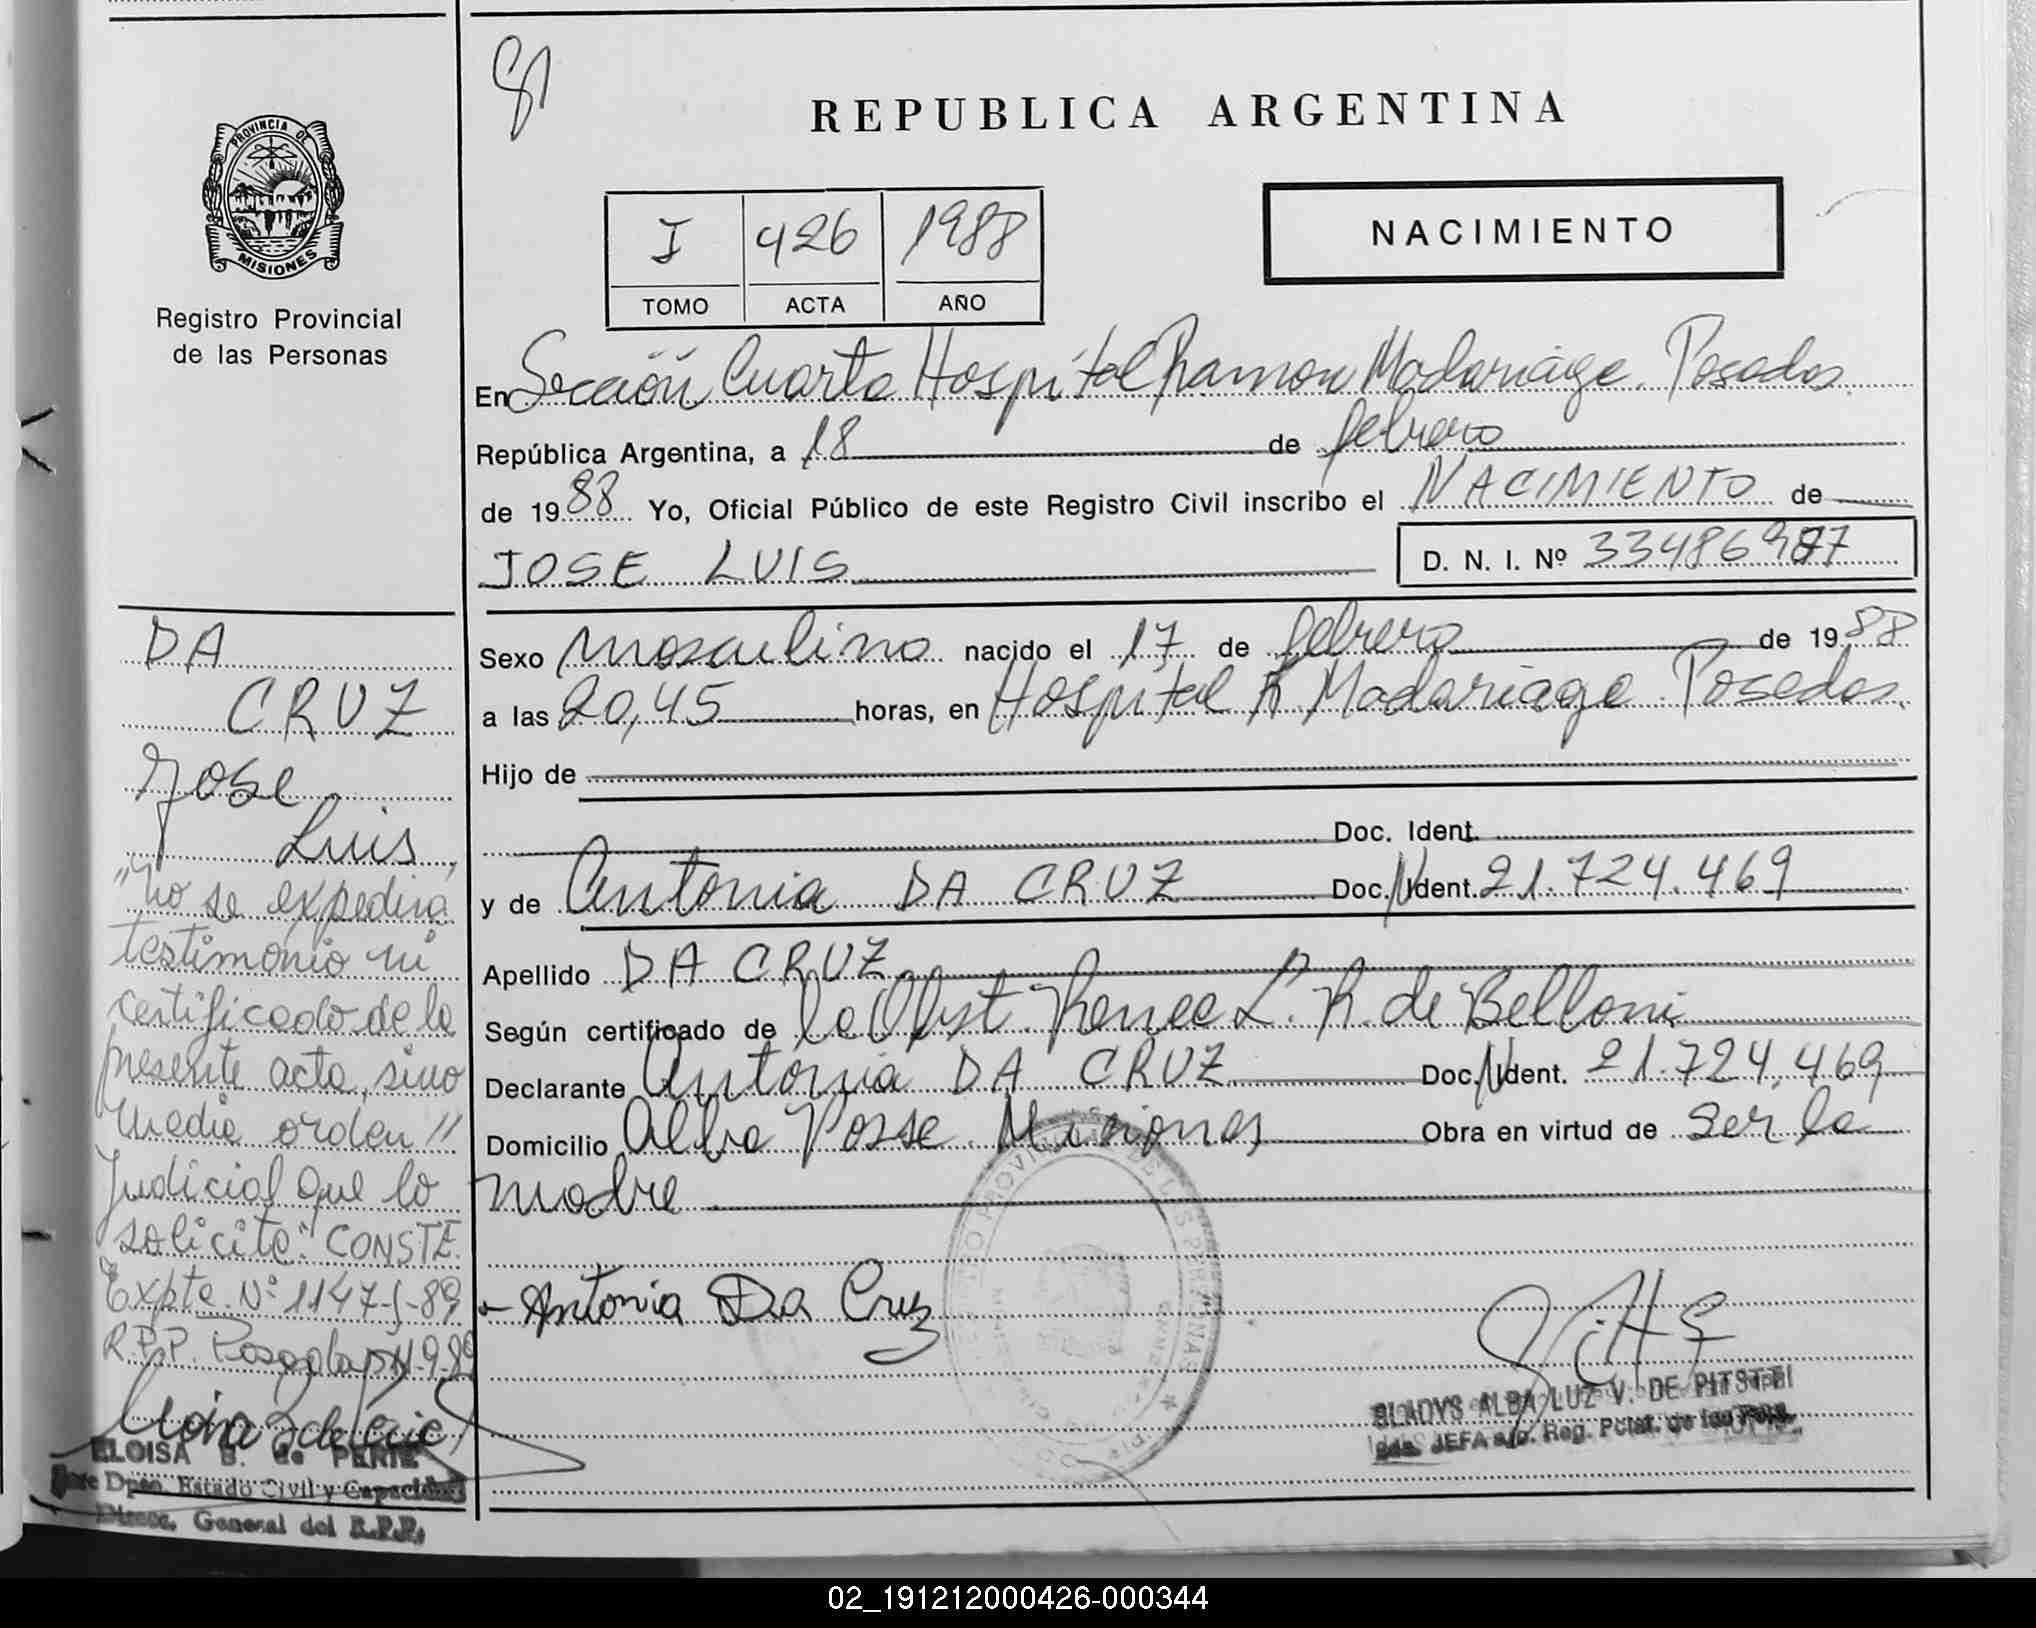 REPUBLICA ARGENTINA
PROVINCIA DE
MISIONES
Registro Provincial
de las Personas
I 426 1988
TOMO ACTA AÑO
NACIMIENTO
En Sección Cuarta Hospital Ramon Madariaga. Posadas.
República Argentina, a 18 de febrero
de 1988 Yo, Oficial Público de este Registro Civil inscribo el NACIMIENTO de
JOSE LUIS D. N. I. Nº 33486987
Sexo masculino nacido el 17 de febrero de 1988
a las 20,45 horas, en Hospital R. Madariaga. Posadas.
Hijo de
Doc. Ident.
y de Antonia DA CRUZ Doc. N Ident. 21.724.469
Apellido DA CRUZ
Según certificado de la Obst. Renee L. R. de Belloni
Declarante Antonia DA CRUZ Doc. N Ident. 21.724.469
Domicilio Alba Posse. Misiones Obra en virtud de ser la
madre
Antonia Da Cruz
GLADYS ALBA LUZ V. DE
JEFA a/c. Reg. Pcial. de las Pers.
DA
CRUZ
Jose
Luis
"No se expedira
testimonio ni
certificado de la
presente acta, sino
media orden //
Judicial que lo
solicite". CONSTE.
Expte. Nº 1147-J-89
R.P.P. Posadas,
ELOISA B. de
Jefe Dpto. Estado Civil y Capacidad
Direcc. General del R.P.P.
02_191212000426-000344